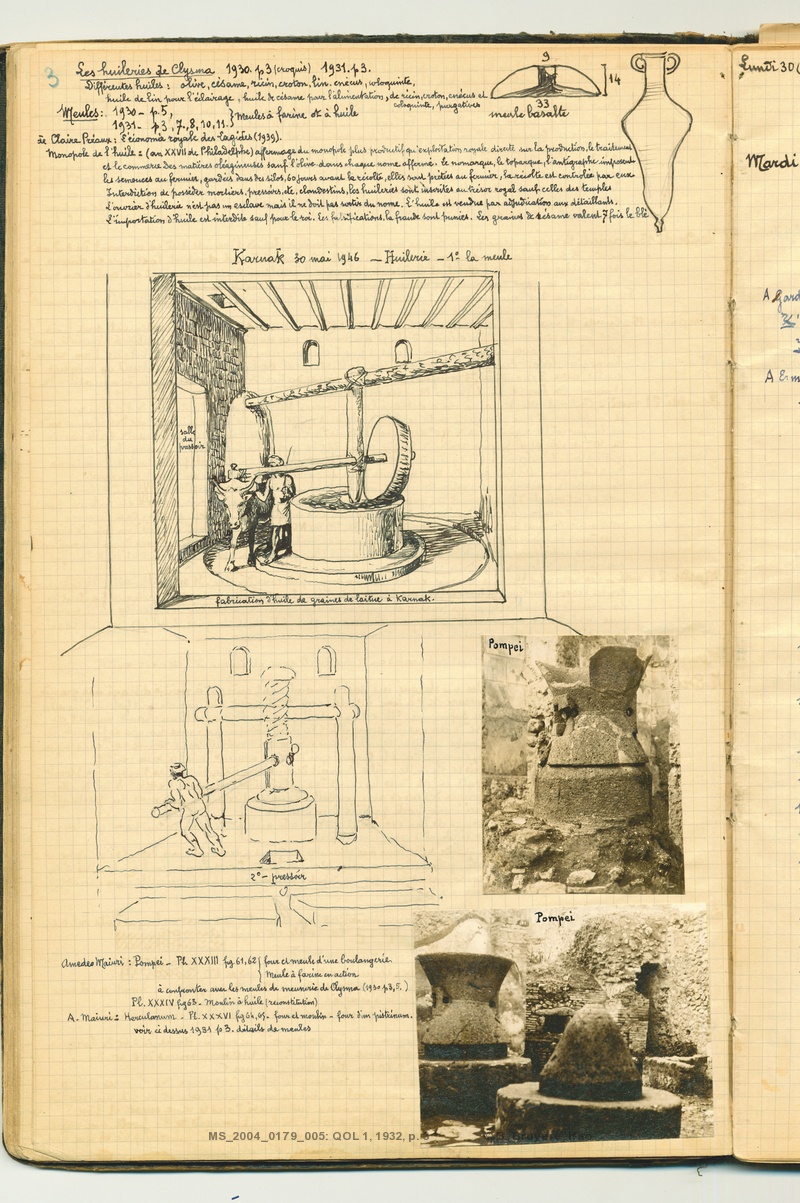 3
Les huileries de Clysma 1930. p3 (croquis) 1931. p.3.
Différentes huiles : olive, césame, ricin, croton, lin, cnécus, coloquinte,
huile de lin pour l'éclairage, huile de césame pour l'alimentation, de ricin, croton, cnécus et
coloquinte, purgatives
Meules : 1930 - p. 5,
1931 - p 3, 7, 8, 10, 11. } Meules à farine et à huile
9
14
33
meule basalte
de Claire Préaux : l'économie royale des lagides (1939).
Monopole de l'huile : (an XXVII de Philadelphe) affermage du monopole plus productif qu'exploitation royale directe sur la production, le traitement
et le commerce des matières oléagineuses sauf l'olive. dans chaque nome, affermé. le nomarque, le toparque, l'antigraphe imposent
les semences au fermier, gardées dans des silos, 60 jours avant la récolte, elles sont prêtées au fermier, la récolte est controlée par eux
Interdiction de posséder mortiers, pressoirs, etc, clandestins, les huileries sont inscrites au trésor royal sauf celles des temples
L'ouvrier d'huilerie n'est pas un esclave mais il ne doit pas sortir du nome. L'huile est vendue par adjudication aux détaillants.
L'importation d'huile est interdite sauf pour le roi. Les falsifications, la fraude sont punies. Les graines de sésame valent 7 fois le blé
Karnak 30 mai 1946 - Huilerie - 1º la meule
salle
du
pressoir
fabrication d'huile de graines de laitue à Karnak.
2º - pressoir
Pompei
Pompei
Amedeo Maiuri : Pompei - Pl. XXXIII fig. 61, 62 { four et meule d'une Boulangerie.
Meule à farine en action
à confronter avec les meules de meunerie de Clysma (1930 p. 3, 5.)
Pl. XXXIV fig 63 - Moulin à huile (reconstitution)
A. Maiuri : Herculanum - Pl. XXXVI fig 64, 65 - four et moulin - four d'un pistrinum.
voir ci dessus 1931 p 3. détails de meules
Lundi 30 (
Mardi
A Gard
A Erm
MS_2004_0179_005: QOL 1, 1932, p.